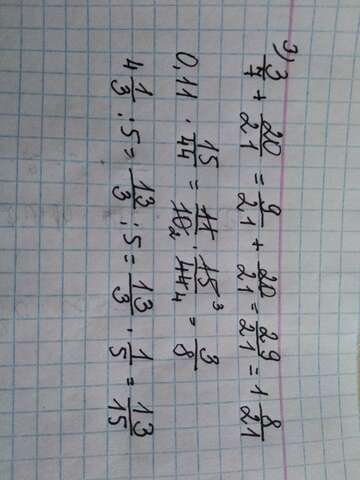 3) 3/7 + 20/21 = 9/21 + 20/21 = 29/21 = 1 8/21
0,11 · 15/44 = 11/10₂ · 15³/44₄ = 3/8
4 1/3 : 5 = 13/3 : 5 = 13/3 · 1/5 = 13/15